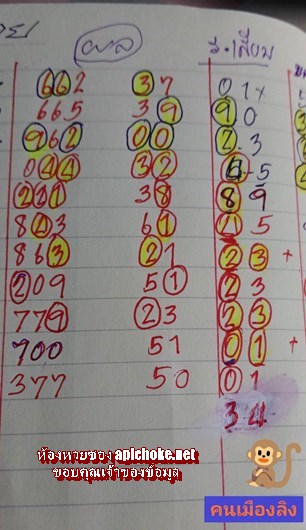 ผล วิ.เสียบ
662 37 01x
665 39 90
962 00 2.3
044 32 6-5
211 38 89
843 61 15
863 21 23+
209 51 23
779 23 23
700 51 01+
377 50 01
34
ห้องหวยของ aplchoke.net
ขอบคุณเจ้าของข้อมูล
คนเมืองลิง